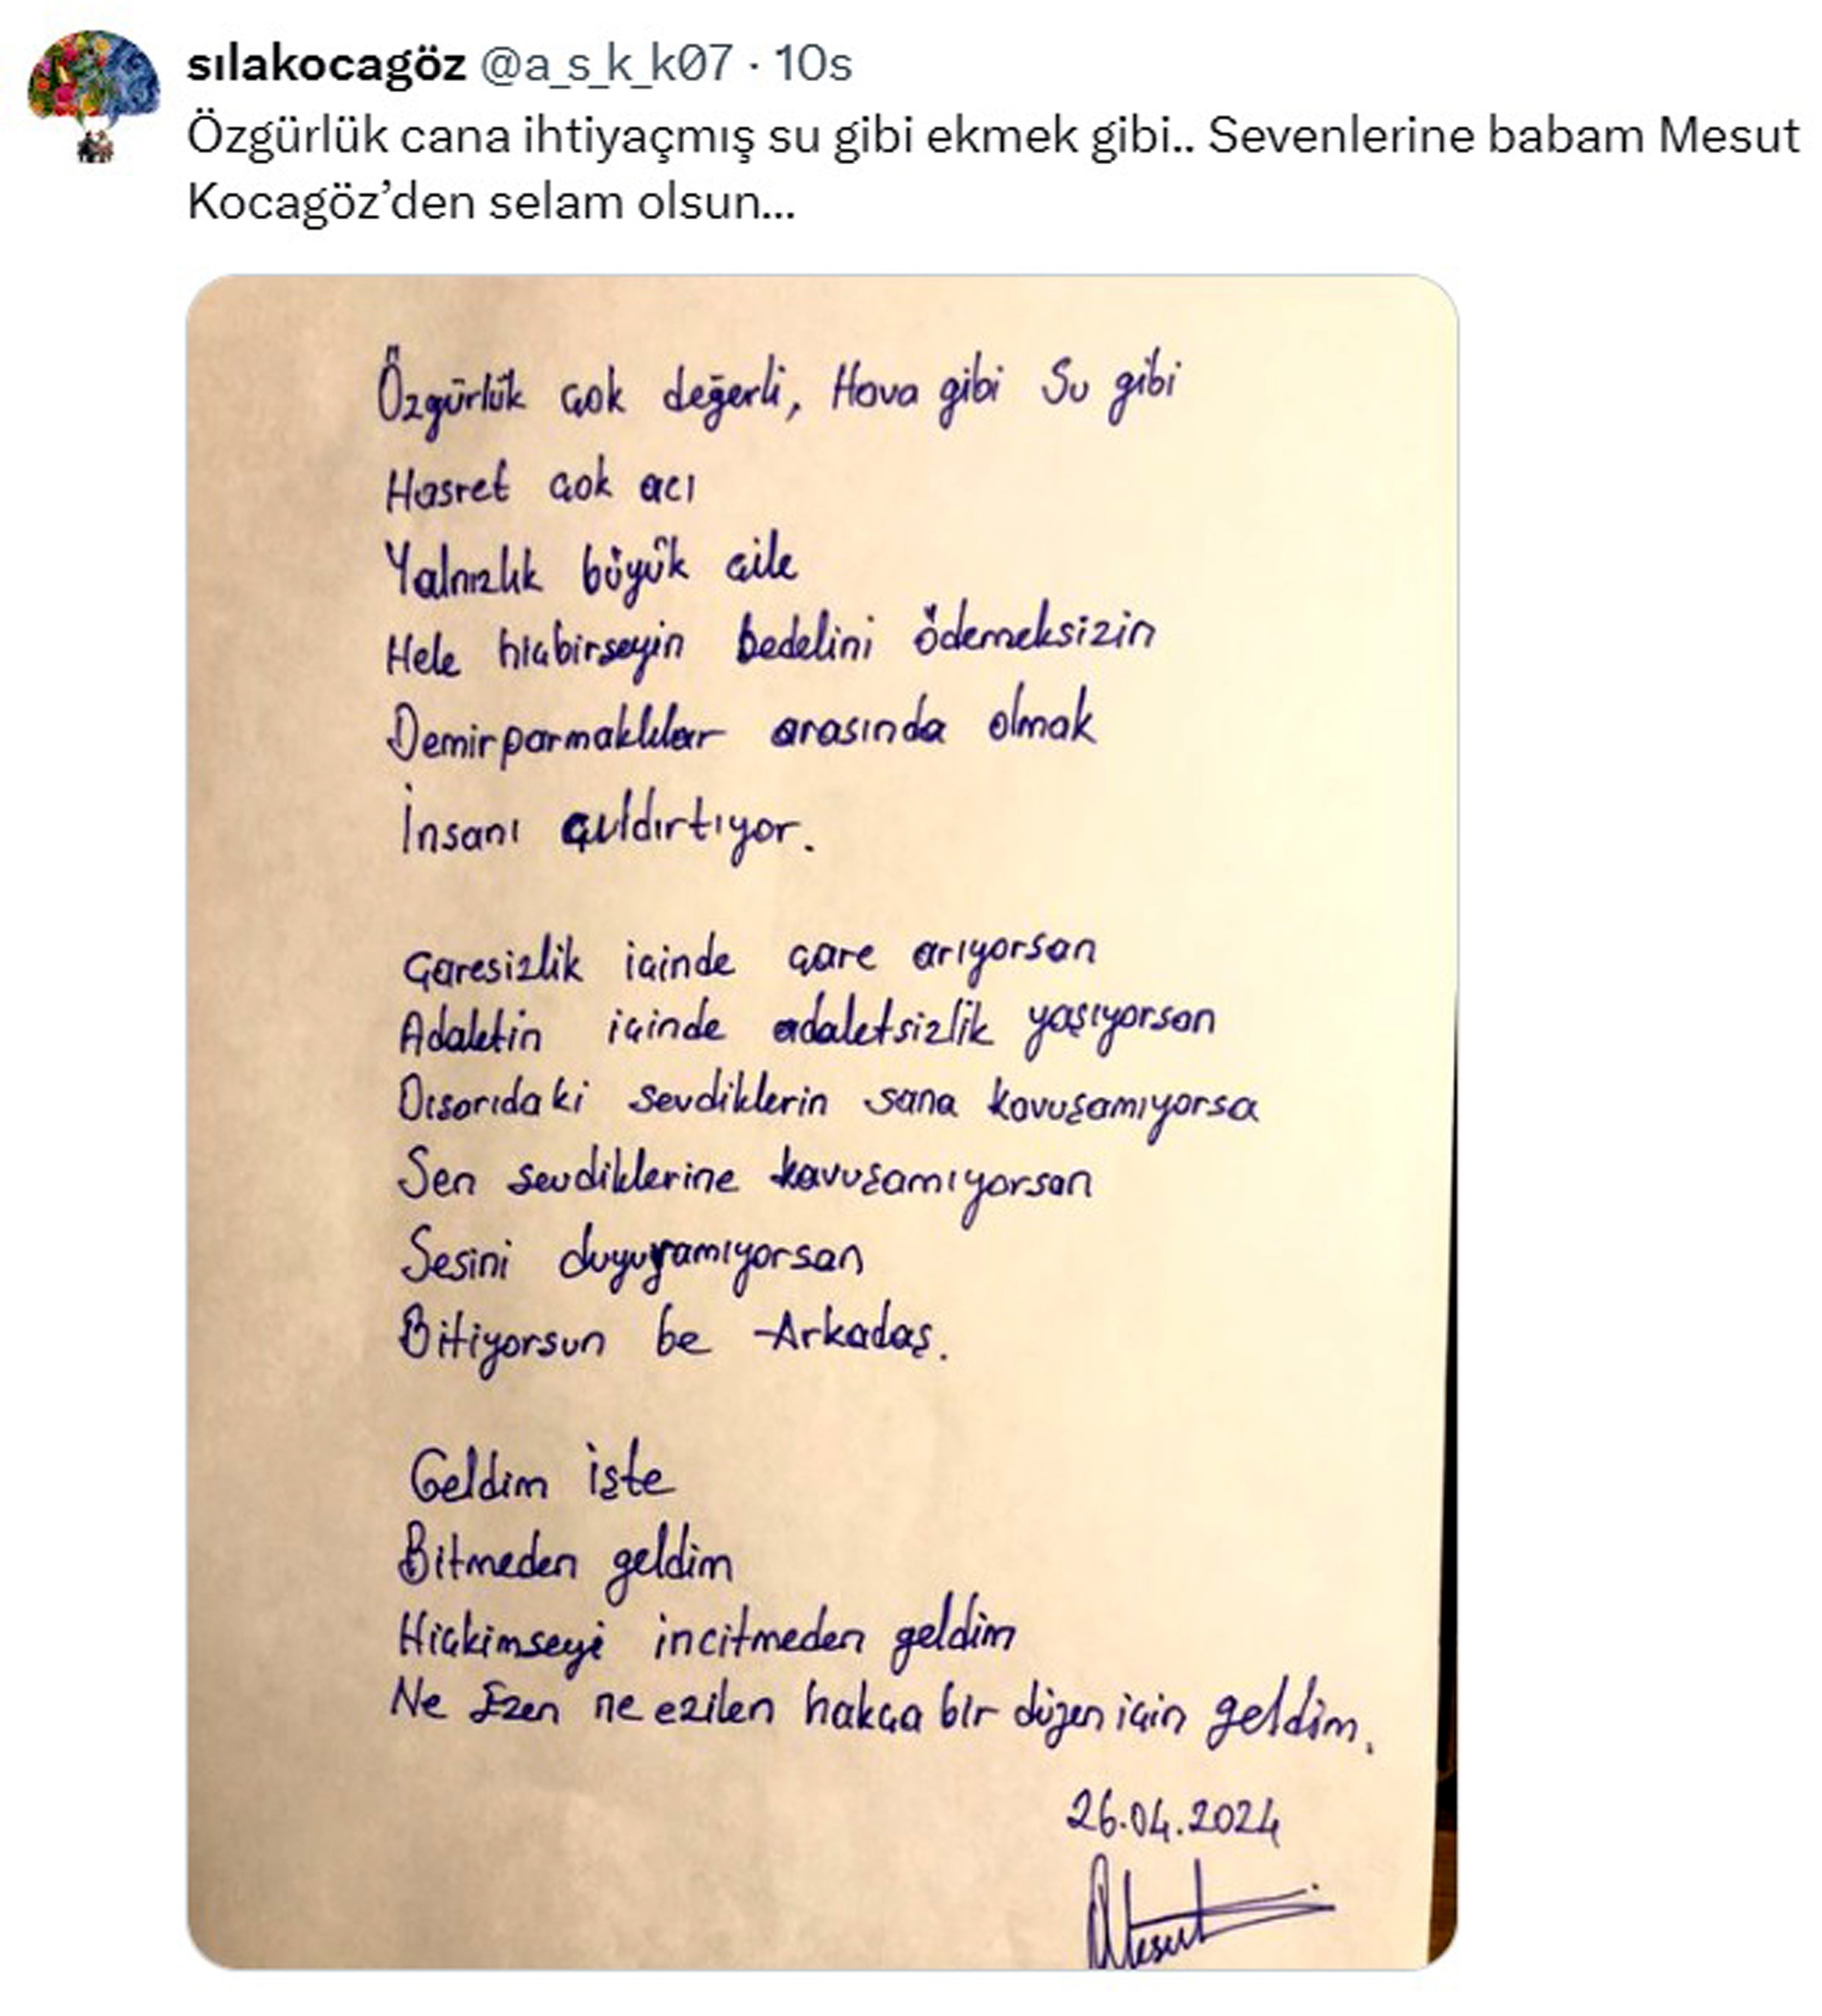 sılakocagöz @a_s_k_k07 · 10s
Özgürlük cana ihtiyaçmış su gibi ekmek gibi.. Sevenlerine babam Mesut
Kocagöz’den selam olsun...
Özgürlük çok değerli, Hava gibi Su gibi
Hasret çok acı
Yalnızlık büyük çile
Hele hiçbirseyin bedelini ödemeksizin
Demirparmaklılar arasında olmak
İnsanı çıldırtıyor.
Çaresizlik içinde çare arıyorsan
Adaletin içinde adaletsizlik yaşıyorsan
Dısarıdaki sevdiklerin sana kavuşamıyorsa
Sen sevdiklerine kavuşamıyorsan
Sesini duyuramıyorsan
Bitiyorsun be Arkadaş.
Geldim işte
Bitmeden geldim
Hiçkimseyi incitmeden geldim
Ne Ezen ne ezilen hakça bir düzen için geldim.
26.04.2024
Mesut